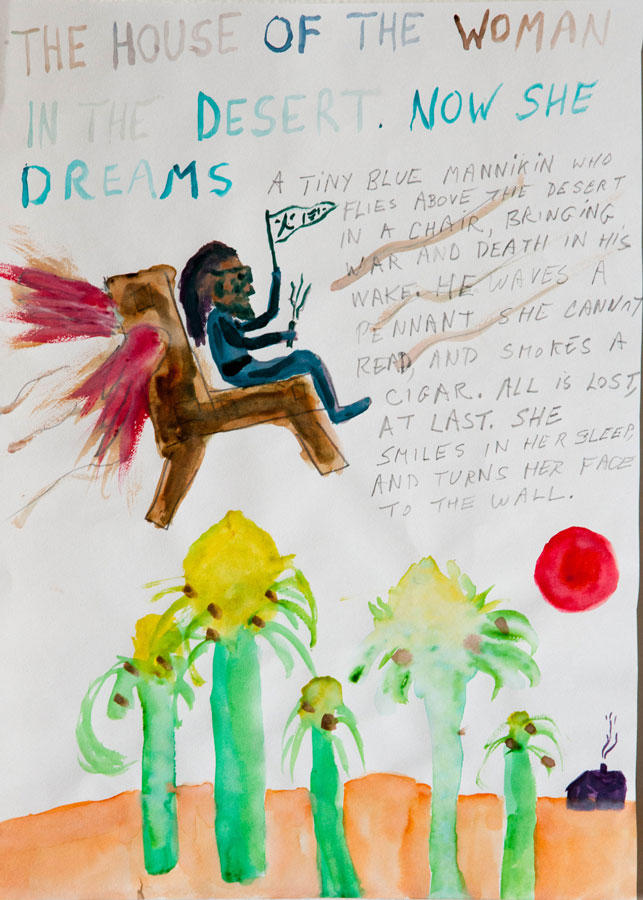 THE HOUSE OF THE WOMAN
IN THE DESERT. NOW SHE
DREAMS
A TINY BLUE MANNIKIN WHO
FLIES ABOVE THE DESERT
IN A CHAIR, BRINGING
WAR AND DEATH IN HIS
WAKE. HE WAVES A
PENNANT SHE CANNOT
READ, AND SMOKES A
CIGAR. ALL IS LOST,
AT LAST. SHE
SMILES IN HER SLEEP,
AND TURNS HER FACE
TO THE WALL.